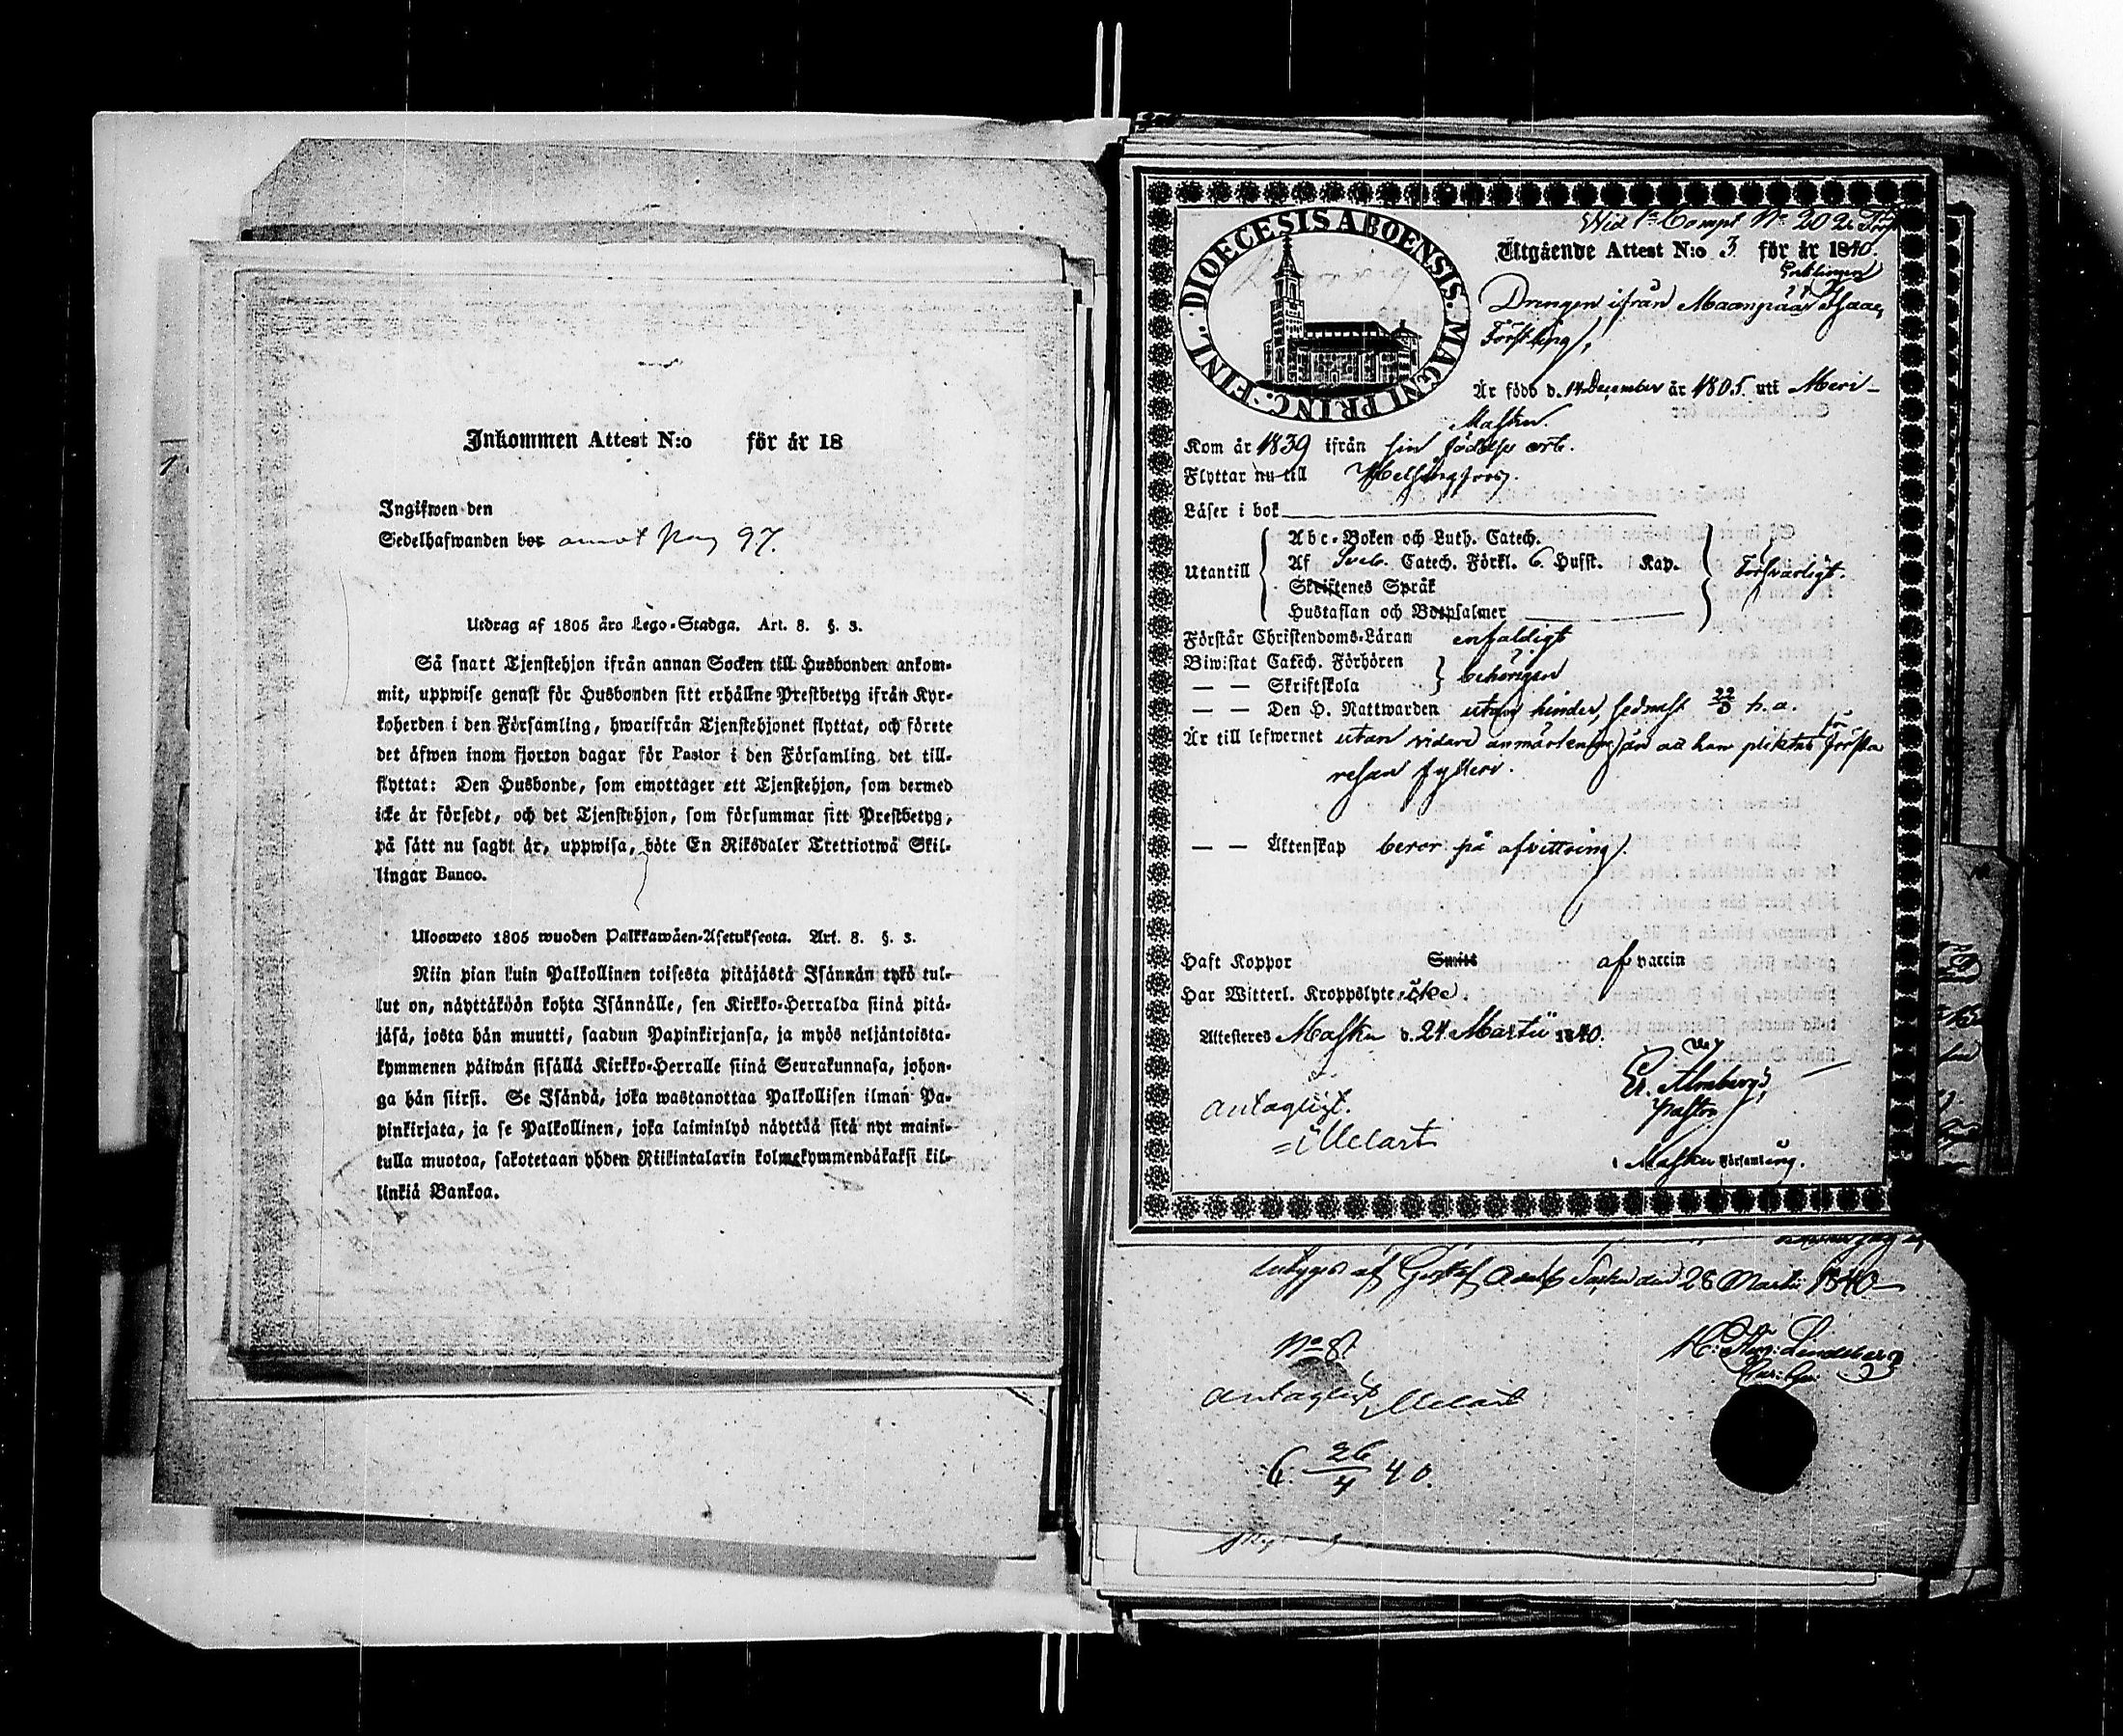 Inkommen Attest N:o för år 18
Ingifwen den
Sedelhafwanden bor annot pag 97.
Utdrag af 1805 års Lego-Stadga. Art. 8. §. 3.
Så snart Tjenstehjon ifrån annan Socken till Husbonden ankom-
mit, uppwise genast för Husbonden sitt erhållne Prestbetyg ifrån Kyr-
koherden i den Församling, hwarifrån Tjenstehjonet flyttat, och förete
det äfwen inom fjorton dagar för Pastor i den Församling det till-
flyttat: Den Husbonde, som emottager ett Tjenstehjon, som dermed
icke är försedt, och det Tjenstehjon, som försummar sitt Prestbetyg,
på sätt nu sagdt är, uppwisa, böte En Riksdaler Trettiotwå Skil-
lingar Banco.
Uloosweto 1805 wuoden Palkkawäen-Asetuksesta. Art. 8. §. 3.
Niin pian kuin Palkollinen toisesta pitäjästä Isännän tykö tul-
lut on, näyttäköön kohta Isännälle, sen Kirkko-Herralda siinä pitä-
jäsä, josta hän muutti, saadun Papinkirjansa, ja myös neljäntoista-
kymmenen päiwän sisällä Kirkko-Herralle siinä Seurakunnasa, johon-
ga hän siirsi. Se Isändä, joka wastanottaa Palkollisen ilman Pa-
pinkirjata, ja se Palkollinen, joka laiminlyö näyttää sitä nyt maini-
tulla muotoa, sakotetaan yhden Riikintalarin kolmekymmendäkaksi kil-
linkiä Bankoa.
DIOECESIS ABOENSIS. MAGNI PRINC. FINL.
Wid 1:a Comp N:o 20 2:
Utgående Attest N:o 3 för år 1840.
Enklingen
Drengen ifrån Maanpää Isaac
Förstling,
Är född d. 14 December år 1805 uti Meri-
Masku.
Kom år 1839 ifrån sin födelse ort.
Flyttar nu till Helsingfors.
Läser i bok
Utantill
Abc-Boken och Luth. Catech.
Af Sveb. Catech. Förkl. 6. Hufst. Kap.
Skriftenes Språk
Hustaflan och Botpsalmer
Försvarligt.
Förstår Christendoms-Läran enfaldigt
Biwistat Catech. Förhören
— — Skriftskola
behörigen
— — Den H. Nattwarden utan hinder, sednast 22/3 h. a.
Är till lefwernet utan vidare anmärkning, än att han pliktat för första
resan fylleri.
— — Äktenskap beror på afvittring.
Haft Koppor Smitt af vaccin
Har Witterl. Kroppslyte icke
Attesteres Masku d. 24 Martii 1840.
Er. Almberg,
Pastor
i Masku Församling.
antagligt.
Melart
af Gustaf Adolfs den 28 Martii 1840
N:o 8
Lindeberg
antaglig Melart
6 26/4 40.